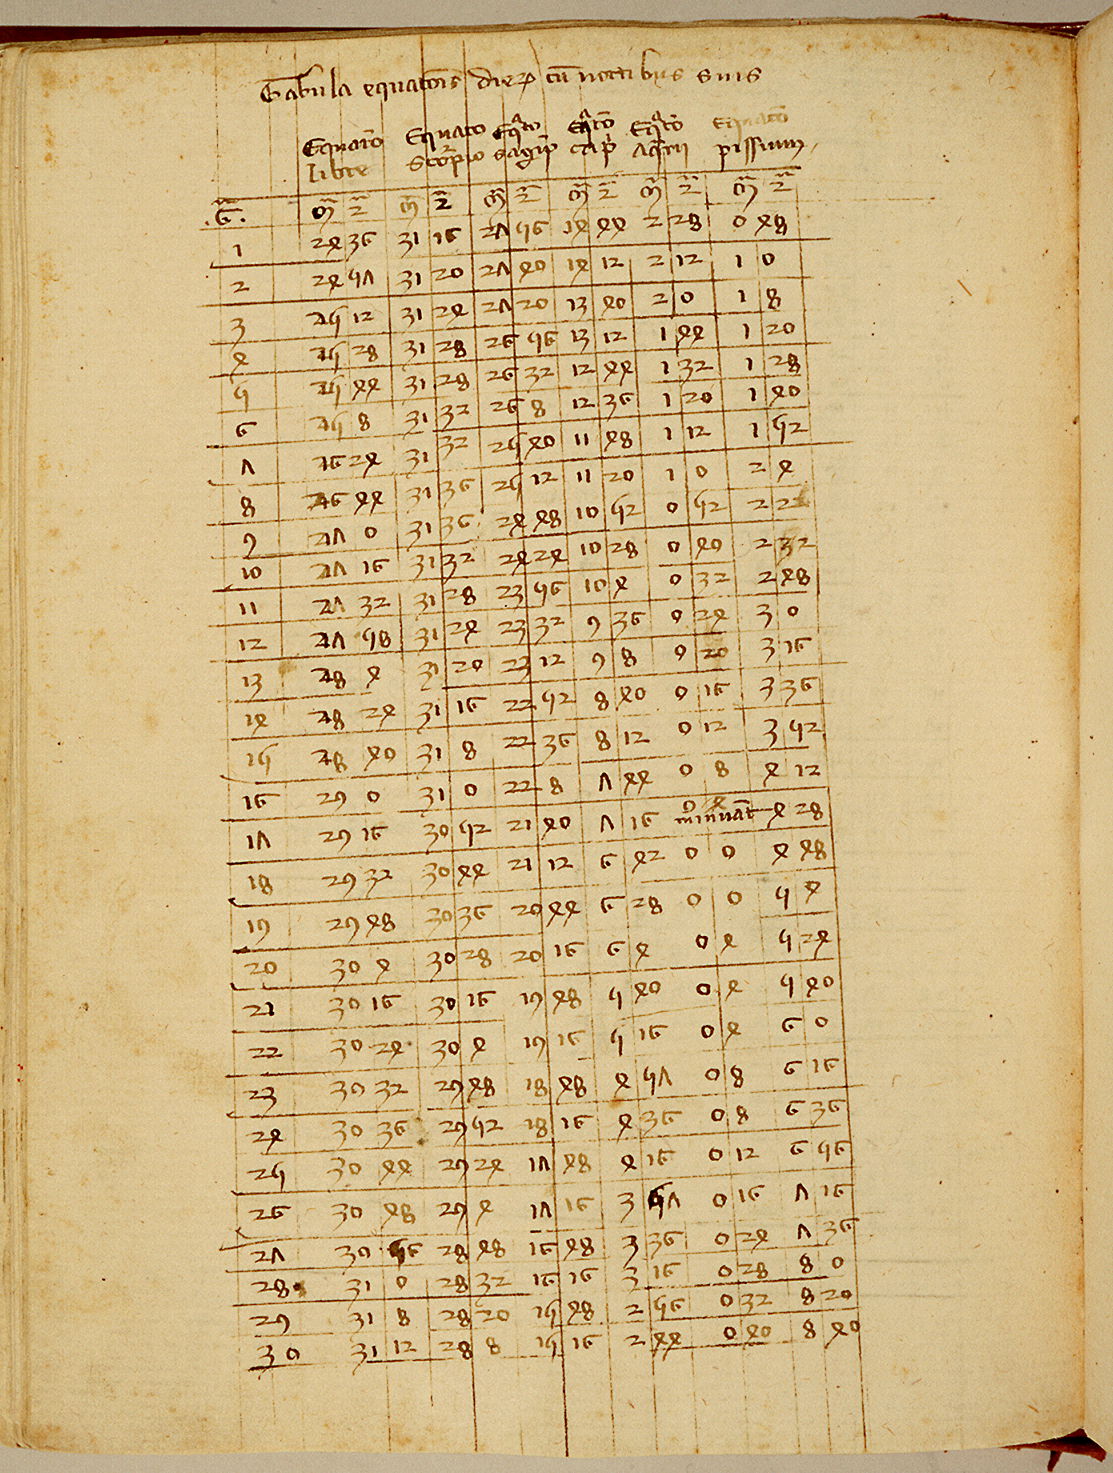 Tabula equatōis dierꝝ cū noctibus suis
Equatō Equato Eq̄to Eq̄tō Eq̄tō Equatō
libre Scorpio sagip̄ cap̄ aq̄rii pissium
G. m̄ 2̄ m̄ 2̄ m̄ 2̄ m̄ 2̄ m̄ 2̄ m̄ 2̄
1 24 36 31 16 27 56 14 44 2 28 0 48
2 24 57 31 20 27 40 14 12 2 12 1 0
3 25 12 31 24 27 20 13 40 2 0 1 8
4 25 28 31 28 26 56 13 12 1 44 1 20
5 25 44 31 28 26 32 12 44 1 32 1 28
6 25 8 31 32 26 8 12 36 1 20 1 40
7 26 24 31 32 25 40 11 48 1 12 1 52
8 26 44 31 36 25 12 11 20 1 0 2 4
9 27 0 31 36 24 48 10 52 0 52 2 22
10 27 16 31 32 24 24 10 28 0 40 2 32
11 27 32 31 28 23 56 10 4 0 32 2 48
12 27 58 31 24 23 32 9 36 0 24 3 0
13 28 4 31 20 23 12 9 8 0 20 3 16
14 28 24 31 16 22 52 8 40 0 16 3 36
15 28 40 31 8 22 36 8 12 0 12 3 52
16 29 0 31 0 22 8 7 44 0 8 4 12
17 29 16 30 52 21 40 7 16 4 minuat 4 28
18 29 32 30 44 21 12 6 42 0 0 4 48
19 29 48 30 36 20 44 6 28 0 0 5 4
20 30 4 30 28 20 16 6 4 0 4 5 24
21 30 16 30 16 19 48 5 40 0 4 5 40
22 30 24 30 4 19 16 5 16 0 4 6 0
23 30 32 29 48 18 48 4 57 0 8 6 16
24 30 36 29 52 18 16 4 36 0 8 6 36
25 30 44 29 24 17 48 4 16 0 12 6 56
26 30 48 29 4 17 16 3 57 0 16 7 16
27 30 56 28 48 16 48 3 36 0 24 7 36
28 31 0 28 32 16 16 3 16 0 28 8 0
29 31 8 28 20 15 48 2 56 0 32 8 20
30 31 12 28 8 15 16 2 44 0 40 8 40